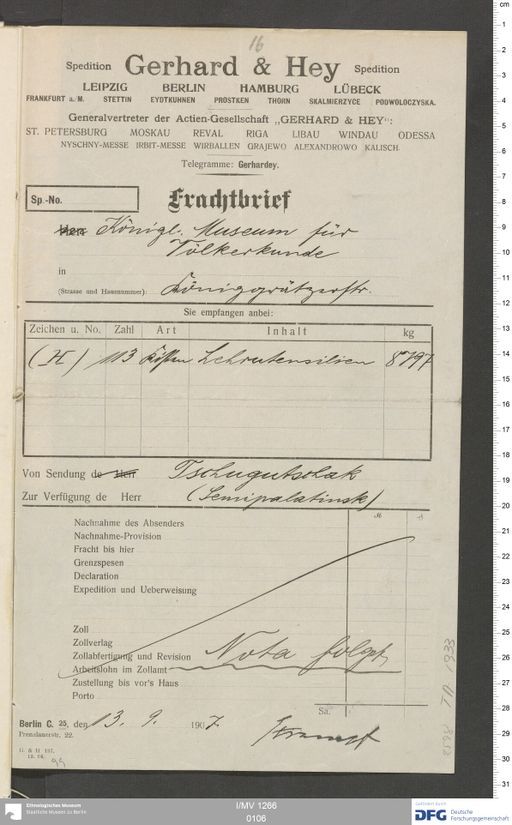 16
Spedition Gerhard & Hey Spedition
LEIPZIG BERLIN HAMBURG LÜBECK
FRANKFURT a. M. STETTIN EYDTKUHNEN PROSTKEN THORN SKALMIERZYCE PODWOLOCZYSKA.
Generalvertreter der Actien-Gesellschaft „GERHARD & HEY":
ST. PETERSBURG MOSKAU REVAL RIGA LIBAU WINDAU ODESSA
NYSCHNY-MESSE IRBIT-MESSE WIRBALLEN GRAJEWO ALEXANDROWO KALISCH.
Telegramme: Gerhardey.
Sp.-No.
Frachtbrief
Königl. Museum für
Völkerkunde
in
(Strasse und Hausnummer): Königgrätzerstr.
Sie empfangen anbei:
Zeichen u. No. Zahl Art Inhalt kg
(H) 113 Kisten Lehrutensilien 8797
Von Sendung de Herr Tschugutschak
Zur Verfügung de Herr (Semipalatinsk)
M
Nachnahme des Absenders
Nachnahme-Provision
Fracht bis hier
Grenzspesen
Declaration
Expedition und Ueberweisung
Zoll
Zollverlag
Zollabfertigung und Revision Nota folgt
Arbeitslohn im Zollamt
Zustellung bis vor's Haus
Porto
Sa.
Berlin C. 25, den 13. 9. 1907.
Prenzlauerstr. 22.
G. & H 107.
99
Ethnologisches Museum
Staatliche Museen zu Berlin
I/MV 1266
0106
gefördert durch
DFG Deutsche
Forschungsgemeinschaft